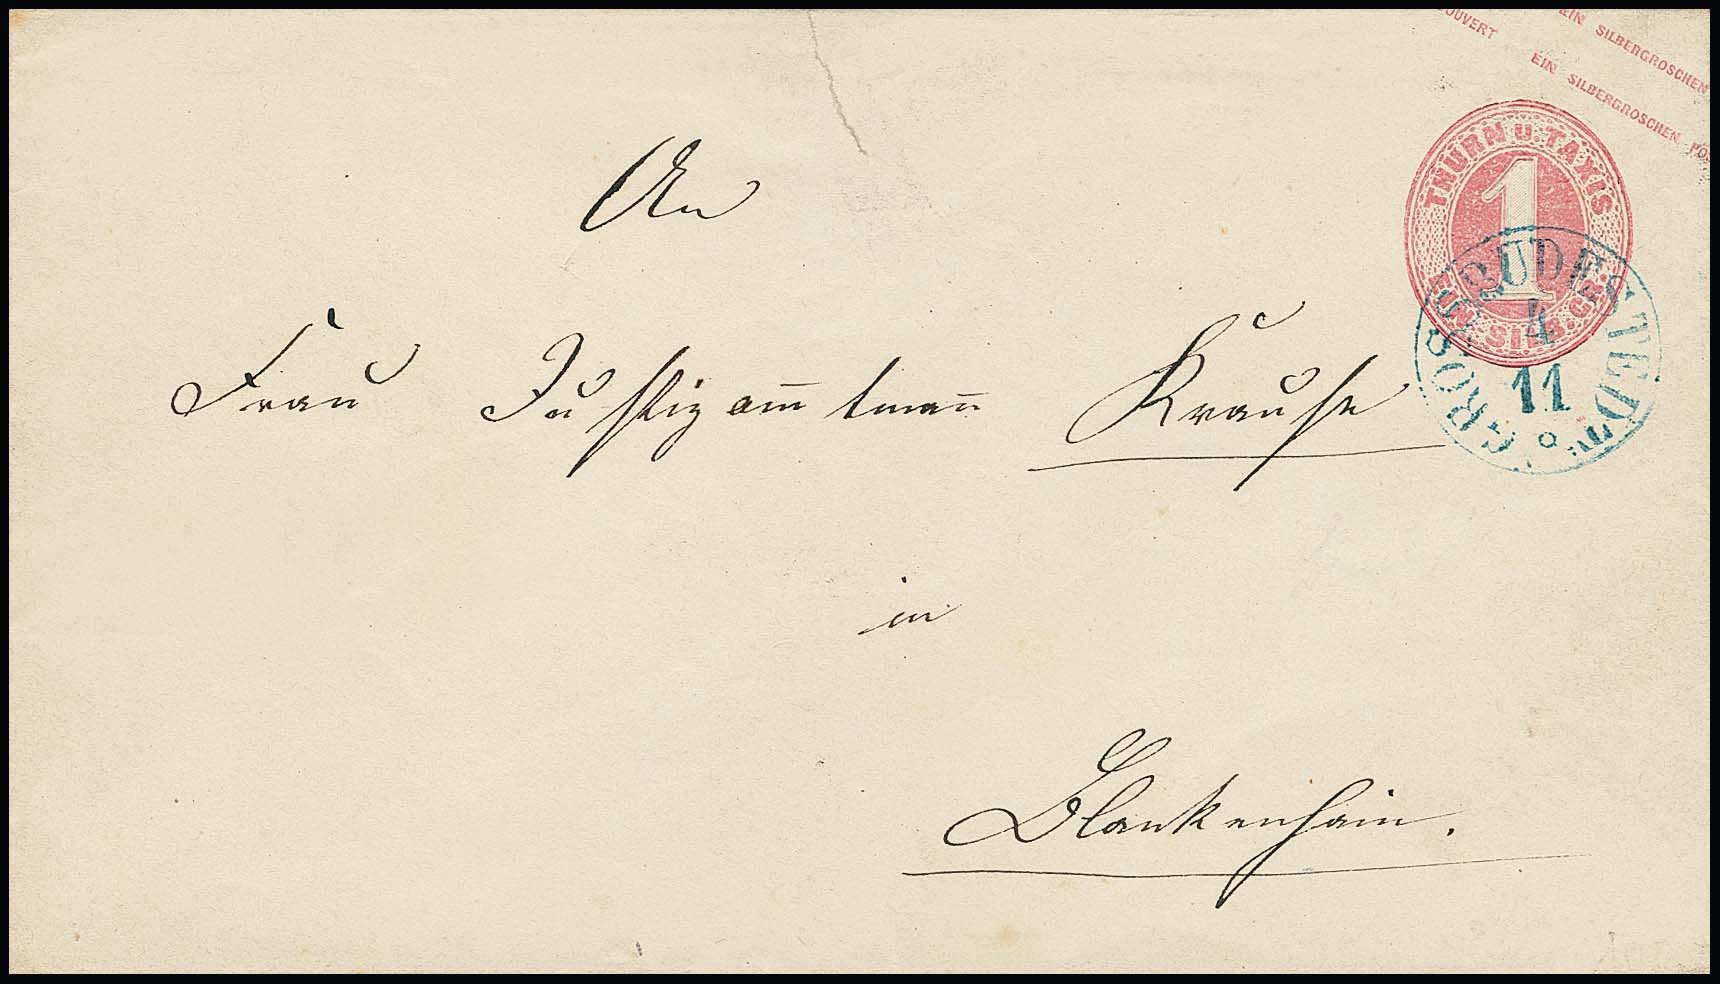 COUVERT EIN SILBERGROSCHEN
EIN SILBERGROSCHEN POS
THURN U. TAXIS
1
EIN SILB. GR.
GROSSRUDESTEDT
4
11
An
Frau Justizam̅tman̅ Krause
in
Blankenhain.